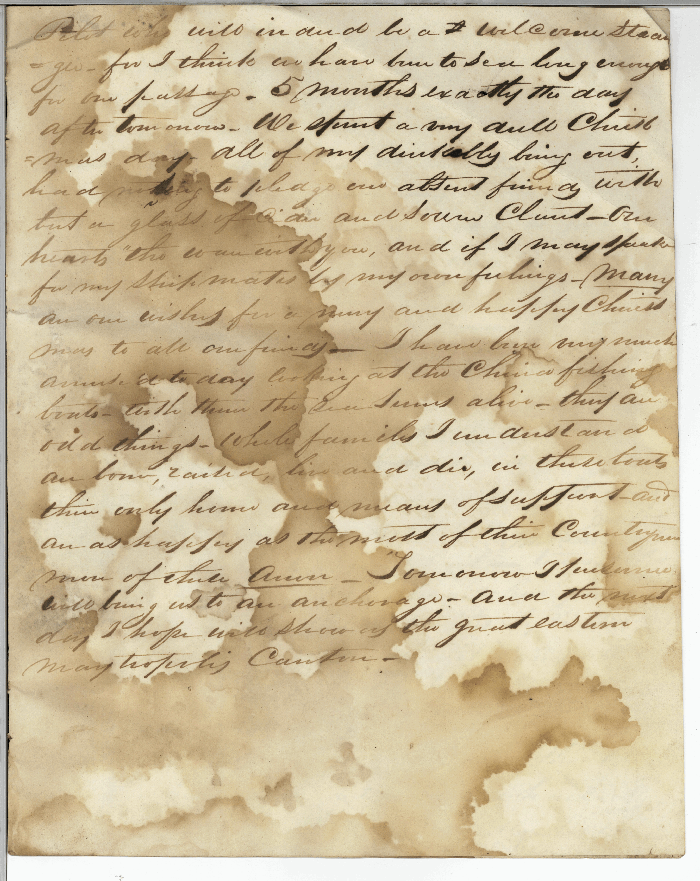 Pilot who will indeed be a welcome stran
= ger - for I think we have been to sea long enough
for one passage - 5 months exactly the day
after tomorrow - We spent a very dull Christ
= mas day - all of my drinkables being out,
had nothing to pledge our absent friends with
but a glass of Cider and sour Claret - Our
hearts tho were with you, and if I may speak
for my shipmates by my own feelings - Many
are our wishes for a merry and happy Christ
mas to all our friends - I have been very much
amused to day looking at the China fishing
boats - with them the sea seems alive - they are
odd things - whole families I understand
are born, raised, live and die, in these boats
their only home and means of support - and
are as happy as the most of their Country
men of these - Tomorrow I
will bring us to an anchorage - and the next
day I hope will show us the great eastern
maytropolis Canton -